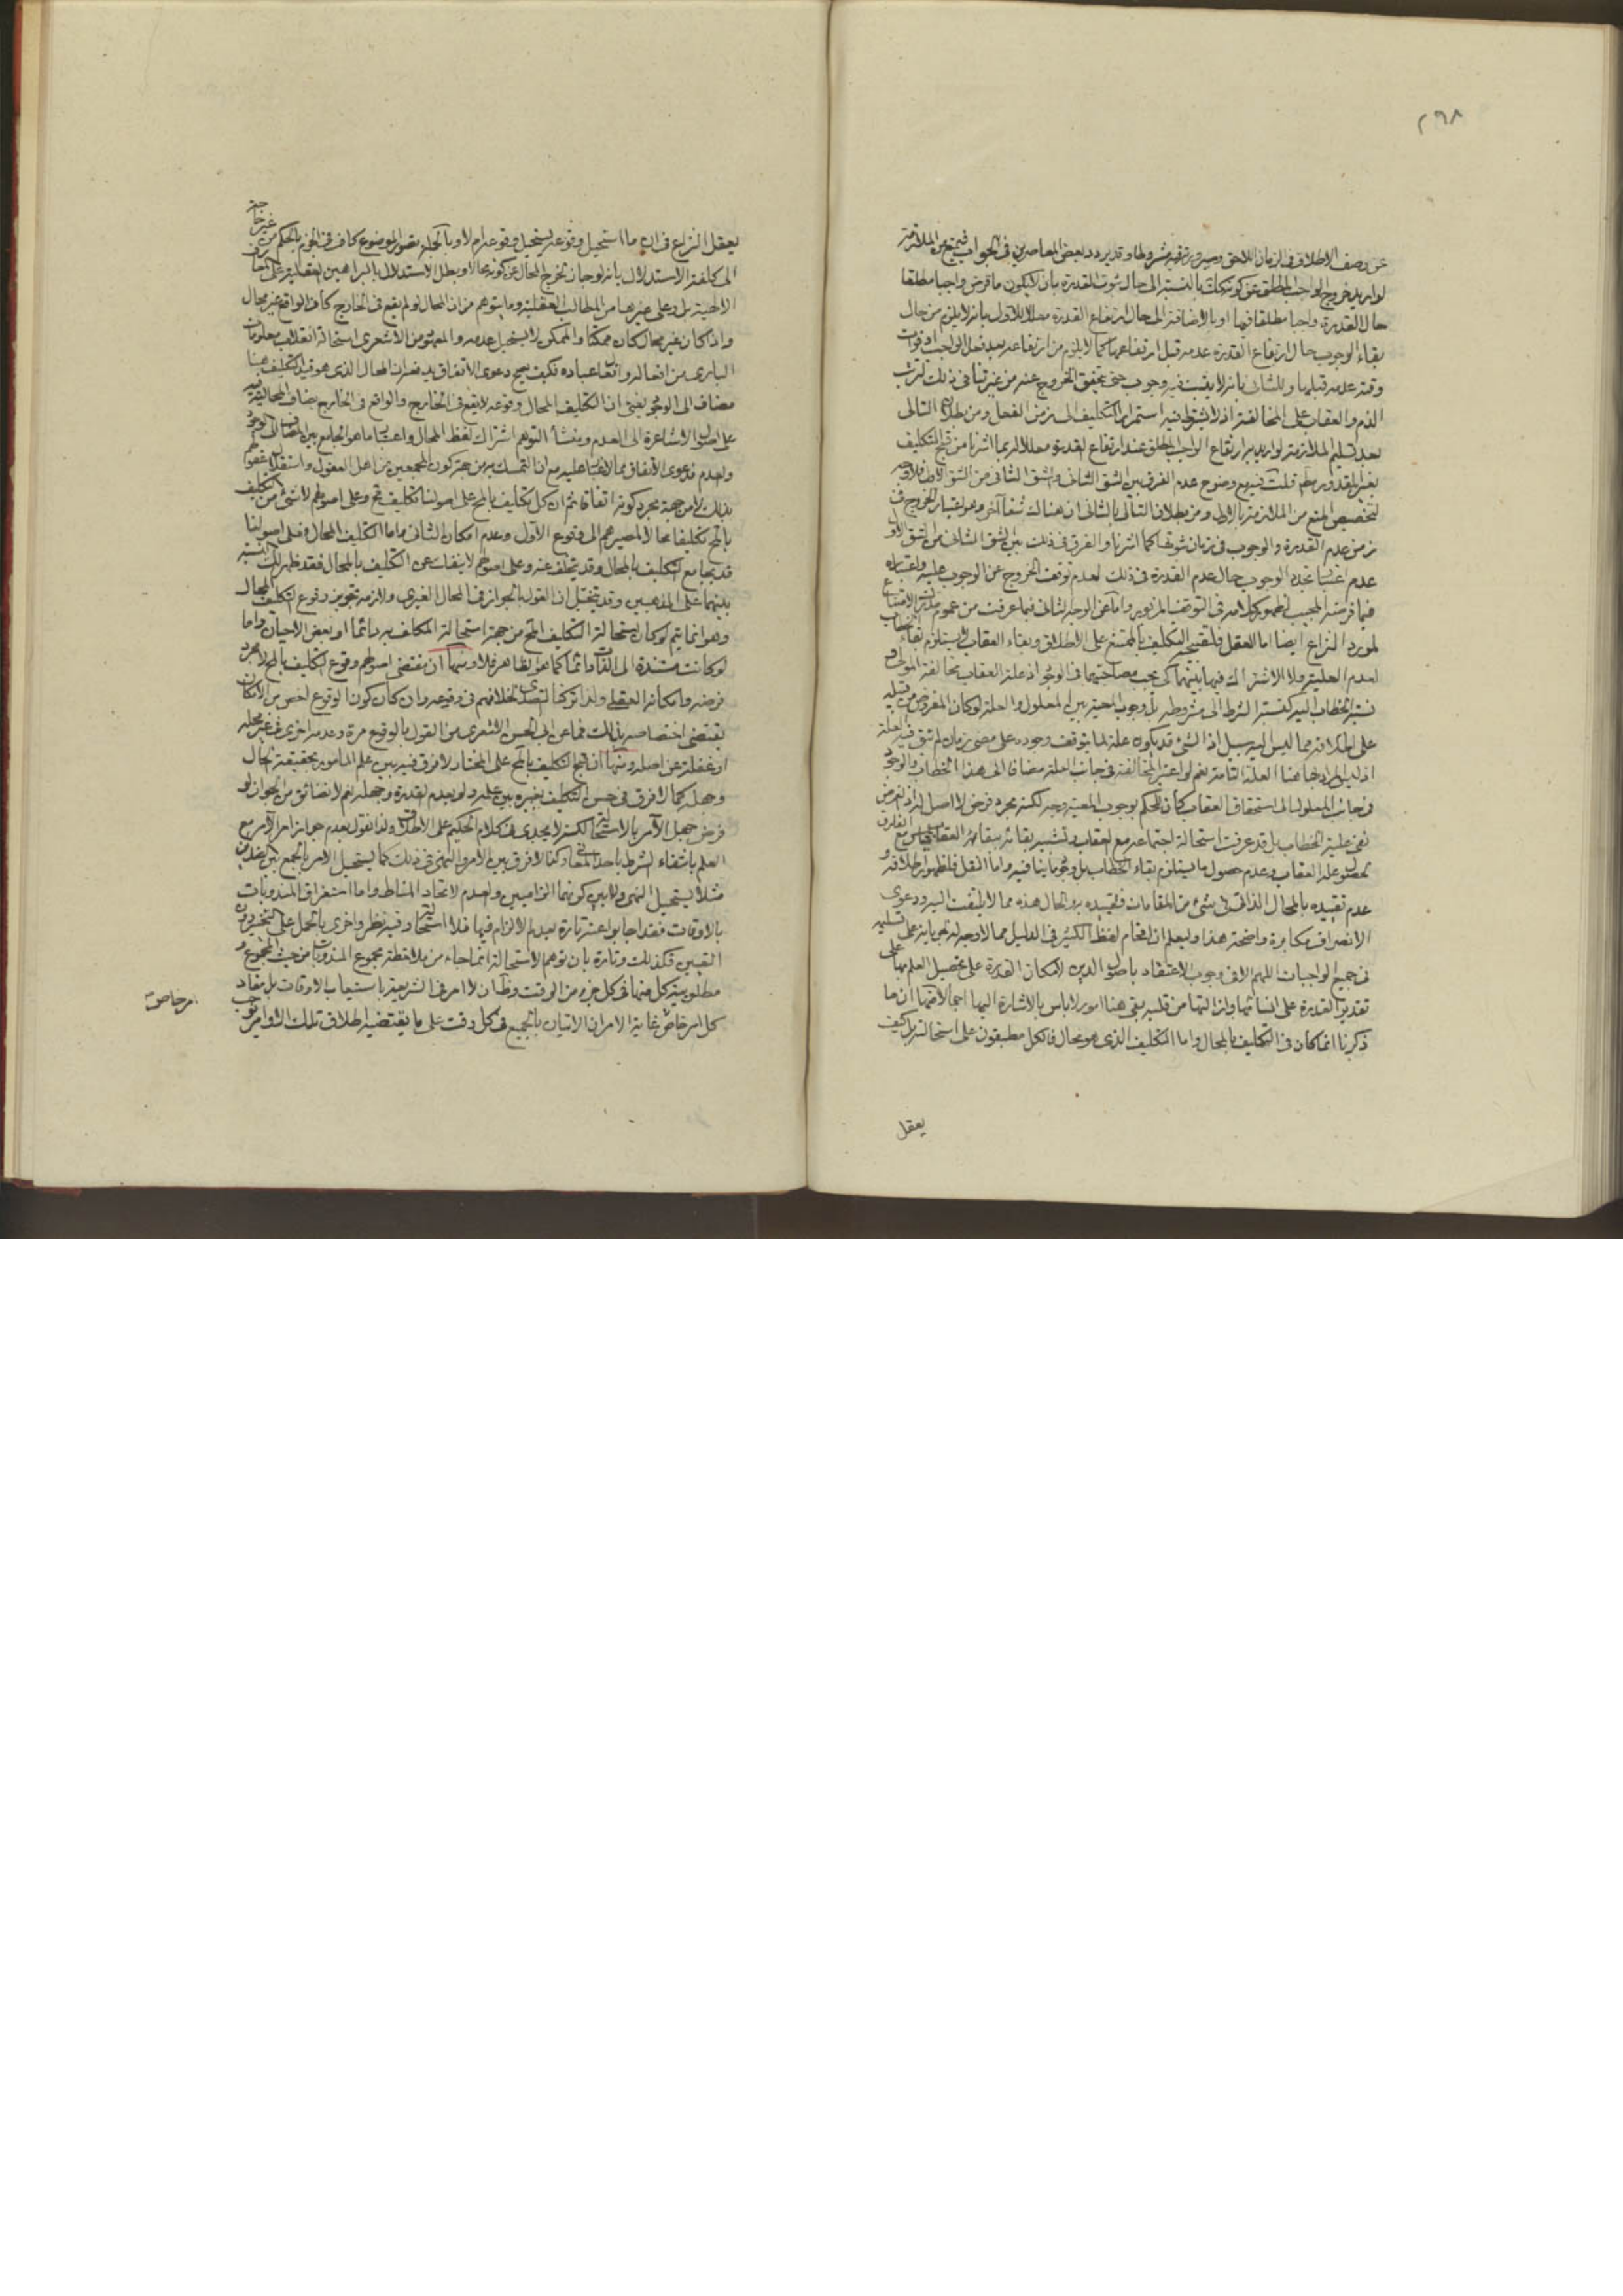 ٢٩٨
عن وصف الاطلاق في الزمان اللاحق وصيرورته فيه مشروطا وقد يردد بعض المعاصرين في الجواب فيمنع من الملازمة
لو اريد خروج الواجب المطلق عن كونه كذلك بالنسبة الى حال ثبوت القدرة بان لا يكون ما فرض واجبا مطلقا
حال القدرة واجبا مطلقا فيها او بالاضافة الى حال ارتفاع القدرة معللا للاول بانه لا يلزم من حال
بقاء الوجوب حال ارتفاع القدرة عدمه قبل ارتفاعها كما لا يلزم من ارتفاعه بعد فعل الواجب او فوات
وقته عدمه قبلهما وللثاني بانه لا يثبت فيه وجوب حتى يتحقق الخروج عنه من غير تناف في ذلك لترتب
الذم والعقاب على المخالفة اذ لا يشترط فيه استمرار التكليف الى زمن الفعل ومن بطلان التالي
بعد تسليم الملازمة لو اريد به ارتفاع الواجب المطلق عند ارتفاع القدرة معللا له بما اشرنا من قبح التكليف
بغير المقدور مطلقا قلت فيه مع وضوح عدم الفرق بين الشق الثاني والشق الثاني من الشق الاول فلا وجه
لتخصيص المنع من الملازمة بالاول ومن بطلان التالي بالثاني ان هناك شقا آخر وهو اعتبار الخروج في
زمن عدم القدرة والوجوب في زمان ثبوتها كما اشرنا والفرق في ذلك بين الشق الثاني من الشق الاول
عدم اعتبار تحقق الوجوب حال عدم القدرة في ذلك لعدم توقف الخروج عن الوجوب عليه واعتباره
فيما فرضه المجيب لظهور كلامه في التوقف المزبور واما عن الوجه الثاني فبما عرفت من عموم
لمورد النزاع ايضا اما العقل فلقبح التكليف بالممتنع على الاطلاق وبقاء العقاب لا يستلزم بقاء الخطاب
لعدم العلية ولا الاشتراك فيها بينهما كي يجب مصاحبتهما في الوجود اذ علة العقاب مخالفة المولى و
نسبة الخطاب اليه كنسبة الشرط الى مشروطه بل وجوب المعية بين المعلول والعلة لو كان المفروض من قبيله
على اطلاقه مما ليس اليه سبيل اذ الشئ قد يكون علة لما يتوقف وجوده على مضي زمان لم تتق فيه العلة
اذ ليس المراد بها هنا العلة التامة نعم لو اعتبر المخالفة في جانب العلة مضافا الى هذا الخطاب والوجود
في جانب المعلول الى استحقاق العقاب كان للحكم بوجوب المعية وجه لكنه مجرد فرض لا اصل له اذ الغرض
نفي علية الخطاب بل قد عرفت استحالة اجتماعه مع العقاب وتشبيه بقائه ببقاء العقاب قياس مع الفارق
لحصول علة العقاب وعدم حصول ما يستلزم بقاء الخطاب بل وجود ما ينافيه واما النقل فلظهور اطلاقه و
عدم تقييده بالمحال الذاتي في شئ من المقامات وتقييده بالمحال هذه مما لا يلتفت اليه ودعوى
الانصراف مكابرة واضحة هذا وليعلم ان اقحام لفظ الكثير في الدليل مما لا وجه له لجريانه على تسليمه
في جميع الواجبات اللهم الا في وجوب الاعتقاد باصول الدين لامكان القدرة على تحصيل العلم بها على
تقدير القدرة على انشائها وازالتها من قلبه بقي هنا امور لا باس بالاشارة اليها اجمالا فمنها ان ما
ذكرنا انما كان في التكليف بالمحال واما التكليف الذي هو محال فالكل مطبقون على استحالته بل كيف
يعقل
يعقل النزاع في ان ما استحيل وقوعه يستحيل وقوعه ام لا وبالجملة تصور الموضوع كاف في الجزم بالحكم من غير حاجة
الى كلفة الاستدلال بانه لو جاز لخرج المحال عن كونه محالا وبطل الاستدلال بالبراهين العقلية على
الالهية بل وعلى غيرها من المطالب العقلية وما يتوهم من ان المحال لو لم يقع في الخارج كان الواقع غير محال
واذا كان غير محال كان ممكنا والممكن لا يستحيل عدمه والمعهود من الاشعري استحالة انقلاب معلومات
الباري من افعاله وافعال عباده فكيف يصح دعوى الاتفاق يدفعه ان المحال الذي هو قيد التكليف هنا
مضاف الى الوجود بمعنى ان التكليف المحال وقوعه لا يقع في الخارج والواقع في الخارج يضاف المحالية فيه
على اصول الاشاعرة الى العدم ومنشأ التوهم اشتراك لفظ المحال واعتباره ما هو الجامع بين المضاف الى الوجود
والعدم فدعوى الاتفاق مما لا غبار عليه مع ان التمسك به من جهة كون المجمعين من اهل العقول واستقلال عقولهم
بذلك لا من جهة مجرد كونه اتفاقا ثم ان كل تكليف بالمحال على اصولنا تكليف محال وعلى اصولهم لا شئ من التكليف
بالمحال تكليفا محالا لمصيرهم الى وقوع الاول وعدم امكان الثاني واما التكليف المحال فعلى اصولنا
قد يجامع التكليف بالمحال وقد يتخلف عنه وعلى اصولهم لا ينفك عن التكليف بالمحال فقد ظهر لك النسبة
بينهما على المذهبين وقد يتخيل ان القول بالجواز في المحال الغيري ولازمه تجويز وقوع التكليف المحال
وهو انما يتم لو كان استحالة التكليف المحال من جهة استحالة المكلف به دائما او بعض الاحيان واما
لو كانت مستندة الى الذات دائما كما هو الظاهر فلا ومنها ان مقتضى اصولهم وقوع التكليف بالمحال لا مجرد
فرضه وامكانه العقلي ولذا تركنا التصدي لخلافهم في وقوعه وان كان كون الوقوع اخص من الامكان
يقتضي اختصاصه بذلك فما عن ابي الحسن الاشعري من القول بالوقوع مرة وعدمه اخرى في غير محله
او غفلة عن اصله ومنها ان قبح التكليف بالمحال على المختار لا فرق فيه بين علم المأمور بحقيقة الحال
وجهله كما لا فرق في حسن التكليف بغيره بين علمه ولو بعدم القدرة وجهله نعم لا نضائق من الجواز لو
فرض جهل الآمر بالاستحالة لكنه لا يجدي في كلام الحكيم على الاطلاق ولذا نقول بعدم جواز امر الآمر مع
العلم بانتفاء الشرط باحد المعاني وكذا لا فرق بين الامر والنهي في ذلك كما يستحيل الامر بالجمع بين الضدين
مثلا يستحيل النهي ولا بين كونهما الزاميين والعدم لاتحاد المناط واما استغراق المندوبات
بالاوقات فقد اجابوا عنه تارة بعدم الالزام فيها فلا استحالة وفيه نظر واخرى بالحمل على التخيير دون
التعيين فكذلك وتارة بان توهم الاستحالة انما جاء من ملاحظة مجموع المندوبات من حيث المجموع و
مطلوبية كل منها في كل جزء من الوقت وظ ان لا امر في الشريعة باستيعاب الاوقات بل مفاد
كل امر خاص غاية الامر ان الاتيان بالجميع في كل وقت على ما يقتضيه اطلاق تلك الاوامر